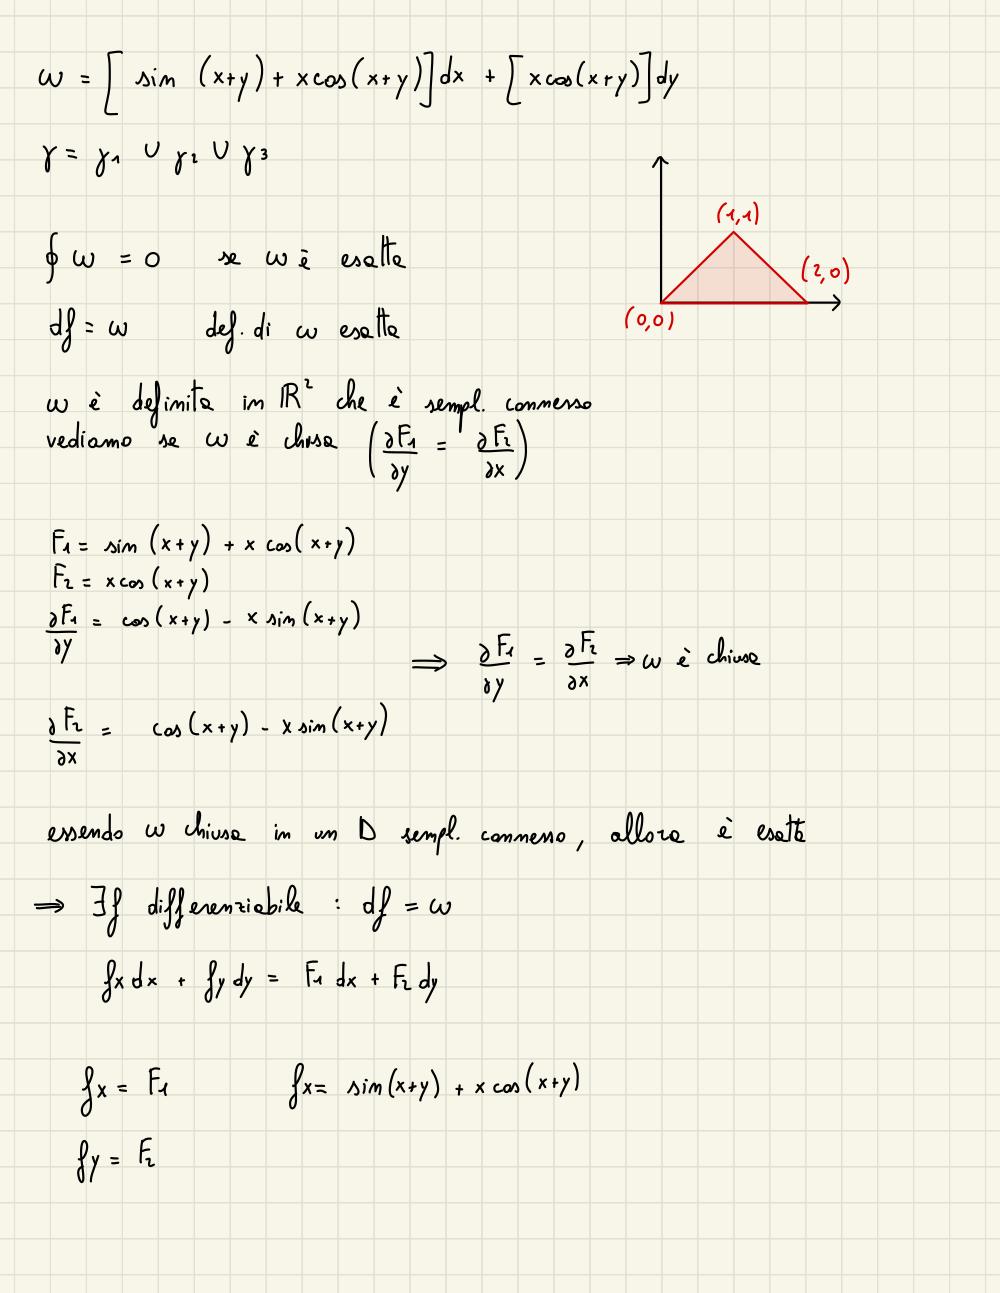 ω = [ sin (x+y) + x cos(x+y)] dx + [x cos(x+y)] dy
γ = γ1 ∪ γ2 ∪ γ3
(1,1)
(2,0)
(0,0)
∮ ω = 0 se ω è esatta
df = ω def. di ω esatta
ω è definita in ℝ² che è sempl. connesso
vediamo se ω è chisa (∂F1/∂y = ∂F2/∂x)
F1 = sin (x+y) + x cos(x+y)
F2 = x cos (x+y)
∂F1/∂y = cos(x+y) - x sin(x+y)
⟹ ∂F1/∂y = ∂F2/∂x ⇒ ω è chiusa
∂F2/∂x = cos(x+y) - x sin(x+y)
essendo ω chiusa in un D sempl. connesso, allora è esatta
⟹ ∃f differenziabile : df = ω
fx dx + fy dy = F1 dx + F2 dy
fx = F1 fx = sin(x+y) + x cos(x+y)
fy = F2